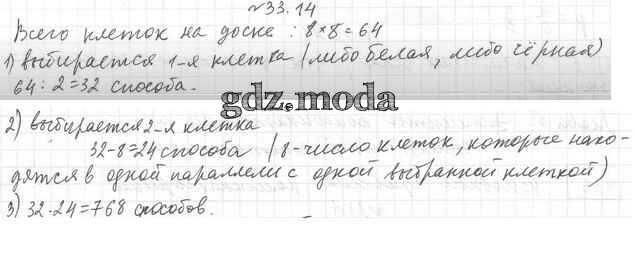 №33.14
Всего клеток на доске : 8×8=64
1) выбирается 1-я клетка (либо белая, либо чёрная)
64 : 2=32 способа.
gdz.moda
2) выбирается 2-я клетка
32-8=24 способа (8-число клеток, которые нахо-
дятся в одной параллели с одной выбранной клеткой)
3) 32·24=768 способов.